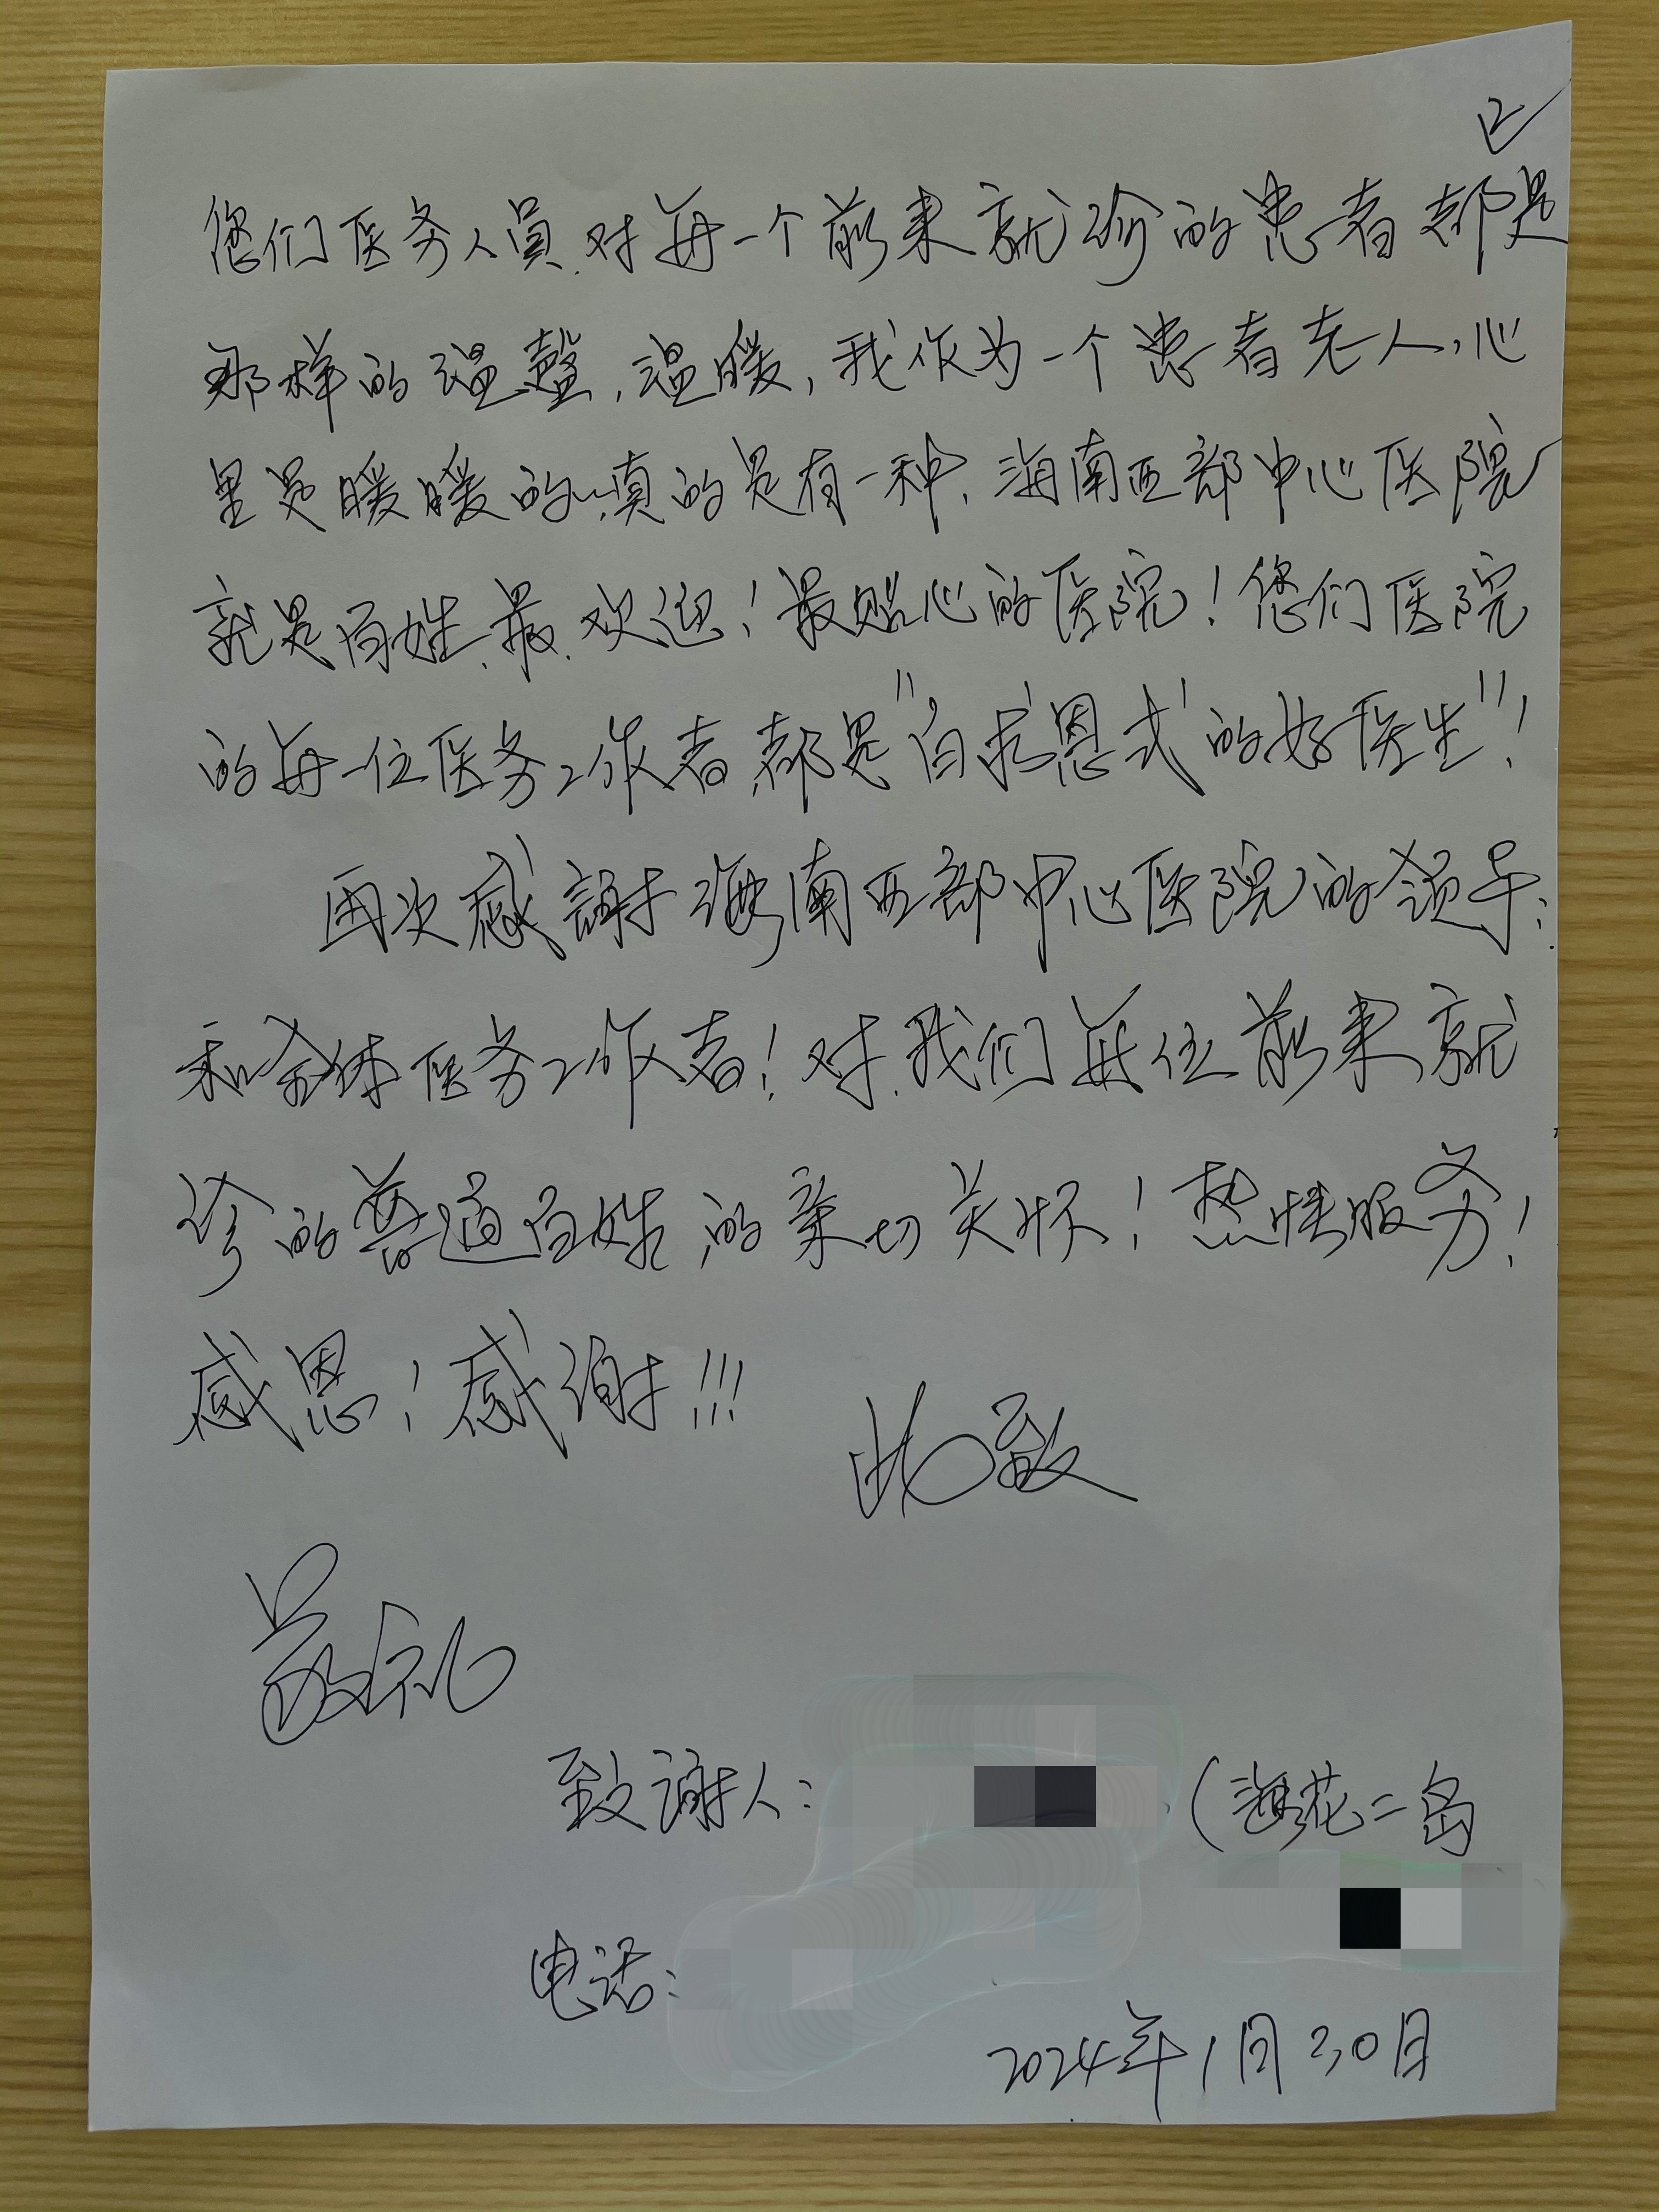 2
您们医务人员,对每一个前来就诊的患者都是
那样的温馨,温暖,我作为一个患者老人,心
里是暖暖的,真的是有一种,海南西部中心医院
就是百姓、最、欢迎!最贴心的医院!您们医院
的每一位医务工作者,都是"'白求恩式'的好医生"!
再次感謝海南西部中心医院的领导:
和全体医务工作者!对,我们每位前来就
诊的普通百姓,的亲切关怀!热情服务!
感恩!感谢!!!
此致
敬礼
致谢人:
(海花二岛
电话:
2024年1月30日